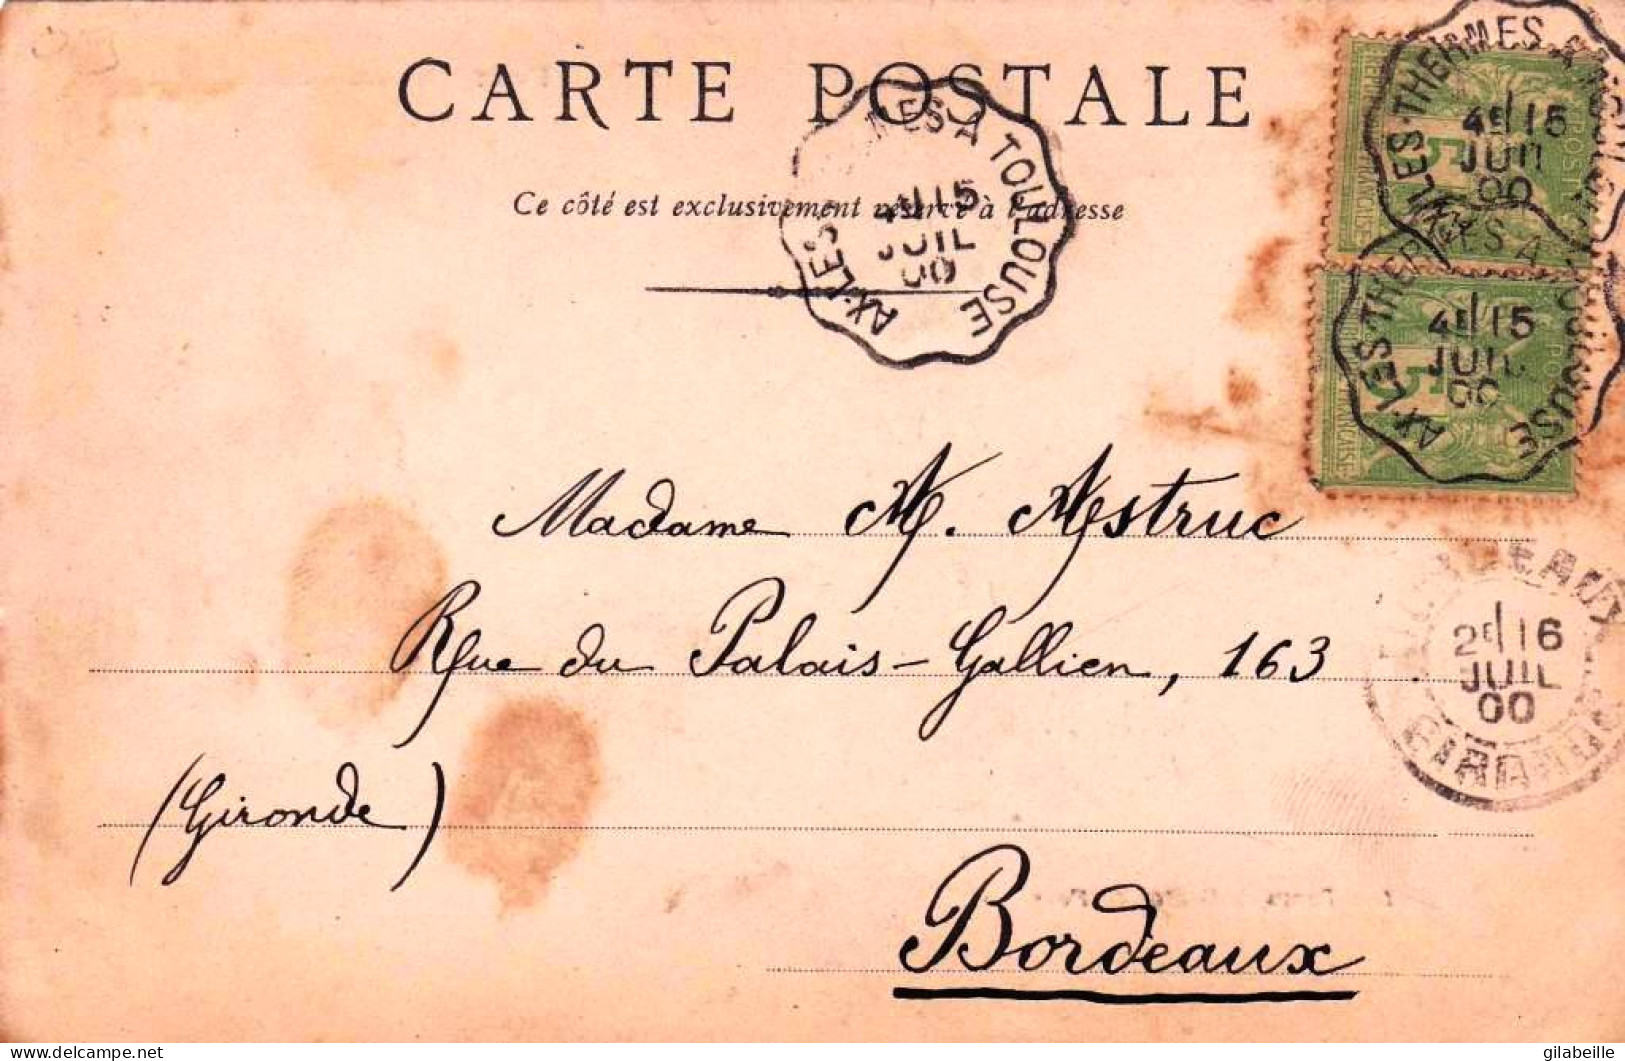 CARTE POSTALE
Ce côté est exclusivement réservé à l'adresse
AX-LES-THERMES A TOULOUSE
4E 15
JUIL
00
AX-LES-THERMES A TOULOUSE
4E 15
JUIL
00
MES A TOULOUSE
AX-LES
15
JUIL
00
5
POST
FRANÇAISE
5
POST
FRANÇAISE
Madame M. Astruc
Rue du Palais-Gallien, 163
(Gironde)
Bordeaux
2E 16
JUIL
00
delcampe.net
gilabeille